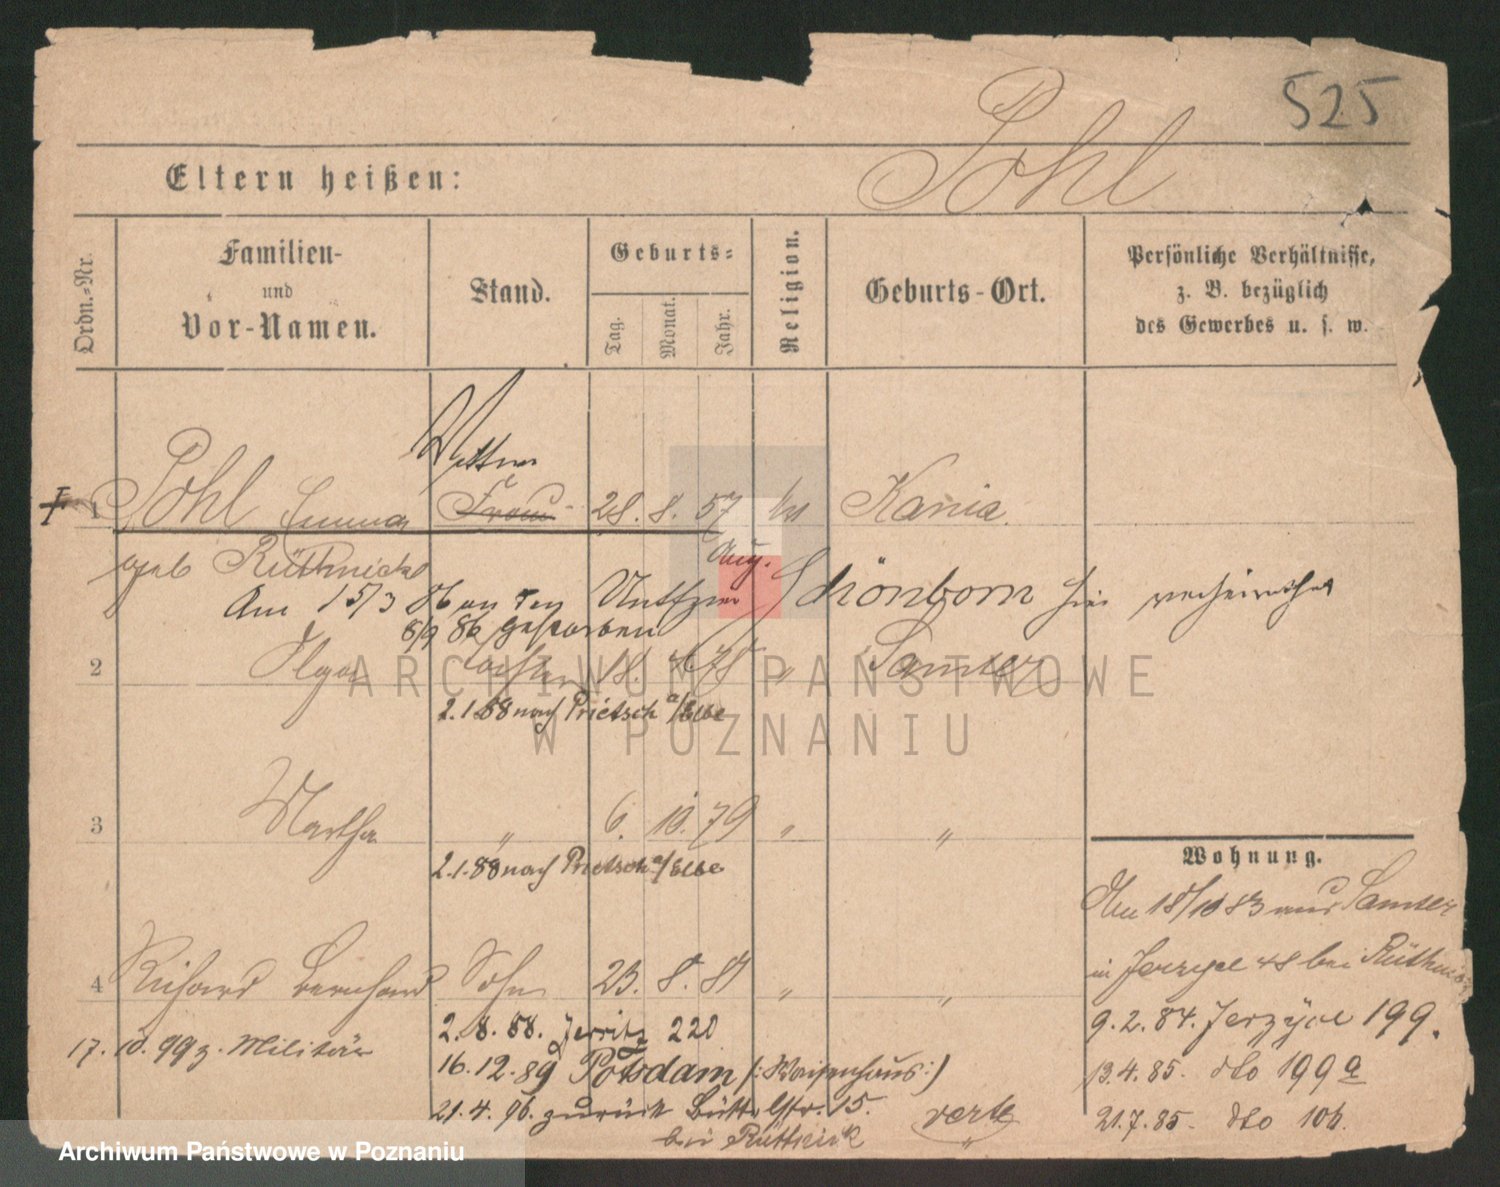 525
Pohl
Eltern heißen:
Ordn.-Nr.
Familien- und Vor-Namen.
Stand.
Geburts-
Tag.
Monat.
Jahr.
Religion.
Geburts-Ort.
Persönliche Verhältnisse, z. B. bezüglich des Gewerbes u. s. w.
1 Pohl Emma Frau 28. 8. 57 Kania
geb Rüthnick
Aug.
Am 15/3 86 an den Schönborn hier verheirathet
8/9 86 gestorben
2 Olga Tochter 18. 78 " Samter
2.1.88 nach Prietsch a/Elbe
3 Martha " 6. 10. 79 " "
2.1.88 nach Prietsch a/Elbe
Wohnung.
Am 18/10 83 aus Samter
in Jerzyce 48 bei Rüthnick
4 Richard Bernhard Sohn 23. 8. 81 " "
2.8.88. Jerzitz 220
9.2.84. Jerzyce 199.
17. 10. 99 z. Militär
16.12.89 Potsdam (:Waisenhaus:)
13.4.85. dto 199a
21.4.96. zurück 15. verte
21.7.85. dto 106.
bei Rüthnick
ARCHIWUM PAŃSTWOWE
W POZNANIU
Archiwum Państwowe w Poznaniu